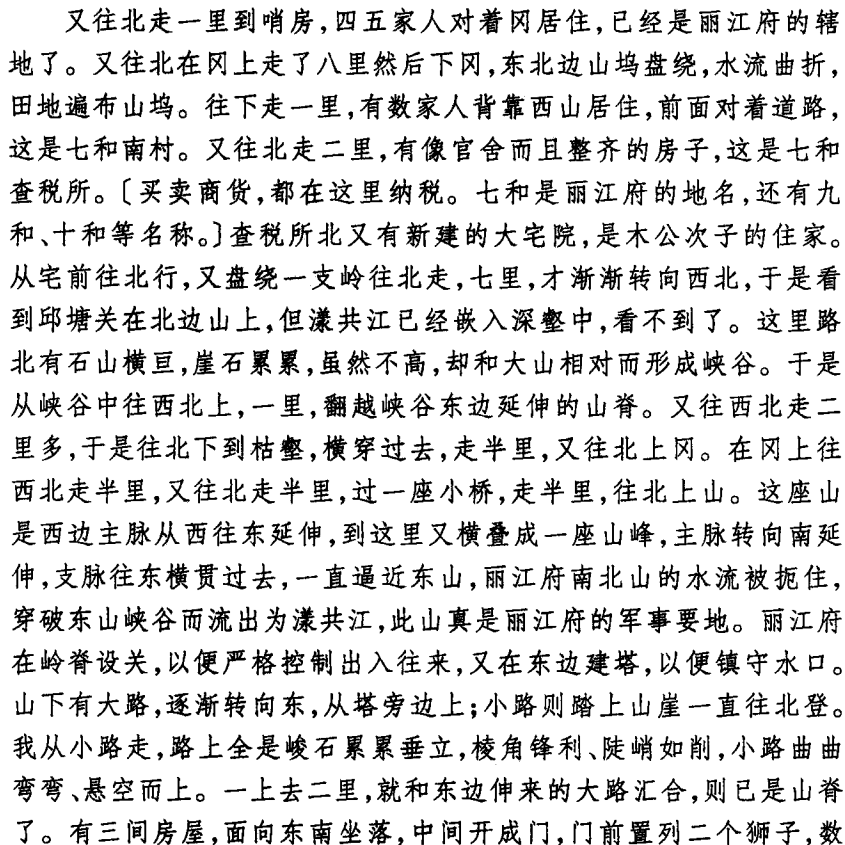 又往北走一里到哨房,四五家人对着冈居住,已经是丽江府的辖
地了。又往北在冈上走了八里然后下冈,东北边山坞盘绕,水流曲折,
田地遍布山坞。往下走一里,有数家人背靠西山居住,前面对着道路,
这是七和南村。又往北走二里,有像官舍而且整齐的房子,这是七和
查税所。〔买卖商货,都在这里纳税。七和是丽江府的地名,还有九
和、十和等名称。〕查税所北又有新建的大宅院,是木公次子的住家。
从宅前往北行,又盘绕一支岭往北走,七里,才渐渐转向西北,于是看
到邱塘关在北边山上,但漾共江已经嵌入深壑中,看不到了。这里路
北有石山横亘,崖石累累,虽然不高,却和大山相对而形成峡谷。于是
从峡谷中往西北上,一里,翻越峡谷东边延伸的山脊。又往西北走二
里多,于是往北下到枯壑,横穿过去,走半里,又往北上冈。在冈上往
西北走半里,又往北走半里,过一座小桥,走半里,往北上山。这座山
是西边主脉从西往东延伸,到这里又横叠成一座山峰,主脉转向南延
伸,支脉往东横贯过去,一直逼近东山,丽江府南北山的水流被扼住,
穿破东山峡谷而流出为漾共江,此山真是丽江府的军事要地。丽江府
在岭脊设关,以便严格控制出入往来,又在东边建塔,以便镇守水口。
山下有大路,逐渐转向东,从塔旁边上;小路则踏上山崖一直往北登。
我从小路走,路上全是峻石累累垂立,棱角锋利、陡峭如削,小路曲曲
弯弯、悬空而上。一上去二里,就和东边伸来的大路汇合,则已是山脊
了。有三间房屋,面向东南坐落,中间开成门,门前置列二个狮子,数